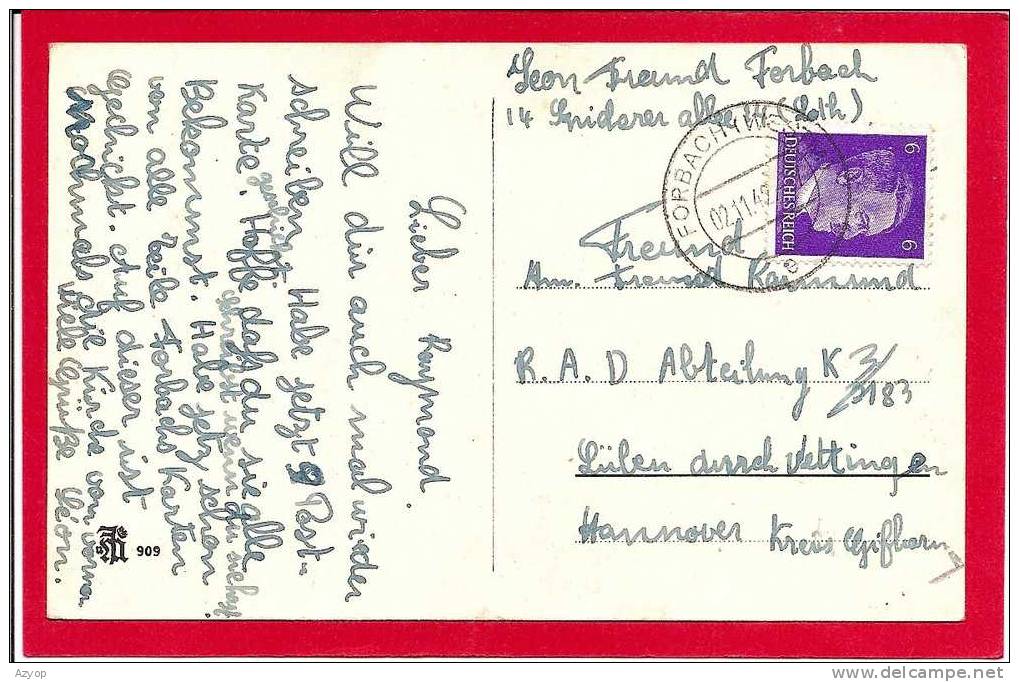 Leon Freund Forbach
14 Spiderer allee 14 (Loth).
FORBACH (WESTM
02.11.42
a
DEUTSCHES REICH
6
6
Freund
An. Freund Raymund
R. A. D Abteilung K 3/
2183
Lüben durch Wettingen
Hannover Kreis Gifhorn
Lieber Raymond.
Will dir auch mal wieder
schreiben. Habe jetzt 9 Post-
Karte. Hoffe daß du sie alle
gewünscht
Bekommst. Habe jetz schon
von alle Teile Forbachs Karten
Geschickt. Auf dieser ist
Nochmels die Kirche von vorne.
Viele Grüße Léon.
909
Azyop
delcampe.net